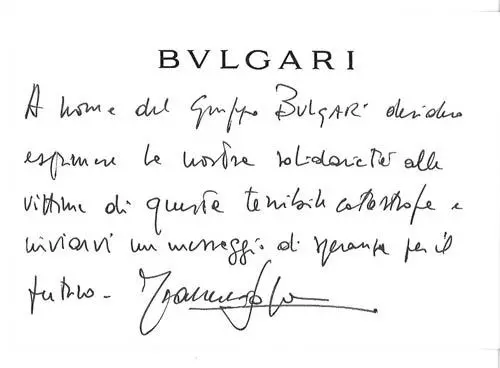 BVLGARI
A nome del Gruppo BVLGARI desidero
esprimere la nostra solidarietà alle
vittime di questa terribile catastrofe e
inviarvi un messaggio di speranza per il
futuro.